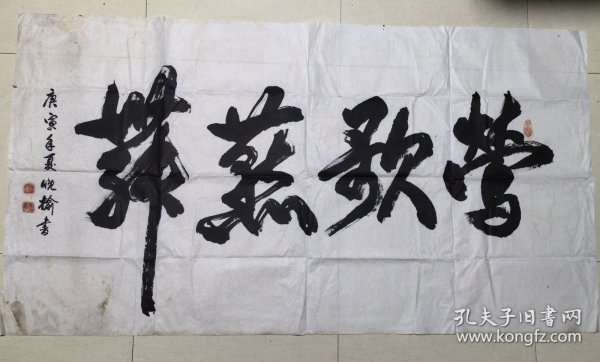 莺歌燕舞
庚寅年夏晚榆书
孔夫子旧书网
www.kongfz.com